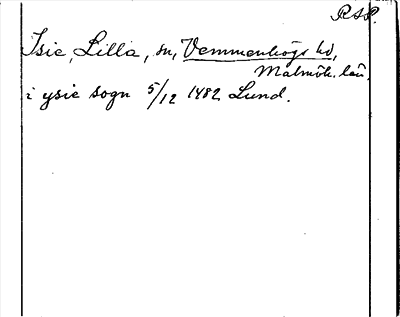 RSP.
Isie, Lilla, sn, Vemmenhögs hd,
Malmöh. län.
i ysie sogn 5/12 1482 Lund.